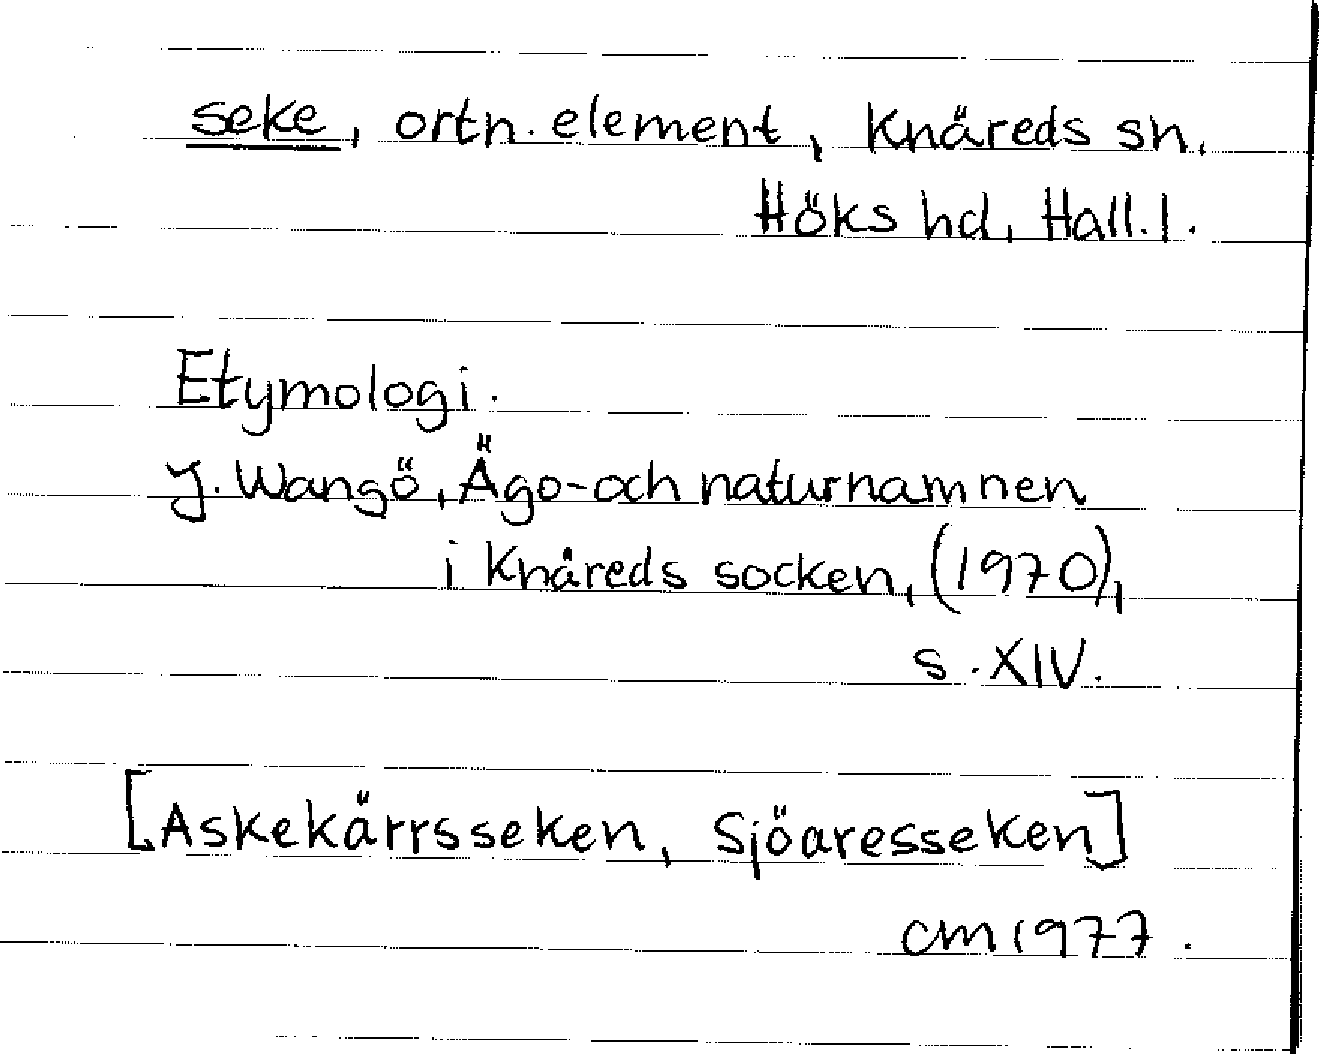 seke, ortn. element, Knäreds sn,
Höks hd, Hall. l.
Etymologi.
J. Wangö, Ägo- och naturnamnen
i Knäreds socken, (1970),
s. XIV.
[Askekärrsseken, Sjöaresseken]
CM 1977.